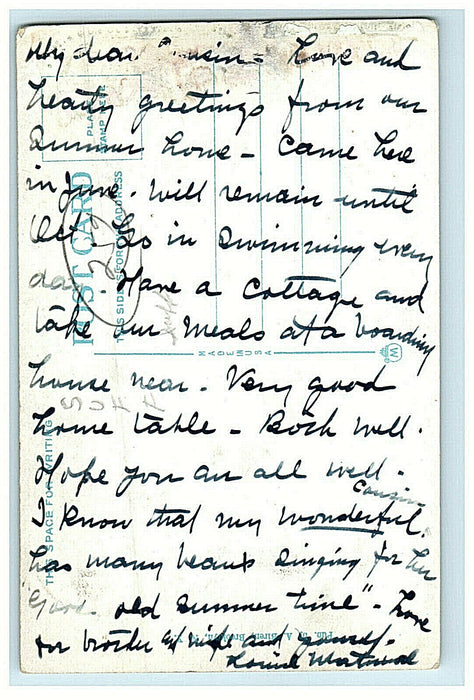 My dear Cousin = Love and
hearty greetings from our
Summer home - Came here
in June. Will remain until
Oct. Go in Swimming every
day. Have a Cottage and
take our meals at a boarding
house near. Very good
home table - Both well.
Hope you are all well -
I know that my wonderful Cousin
has many beaus singing for her
"Good old Summer time" - Love
for brother & wife and yourself -
Louise
POST CARD
PLACE STAMP HERE
THIS SIDE FOR ADDRESS
THE SPACE FOR WRITING
MADE IN USA
25¢
SUFF